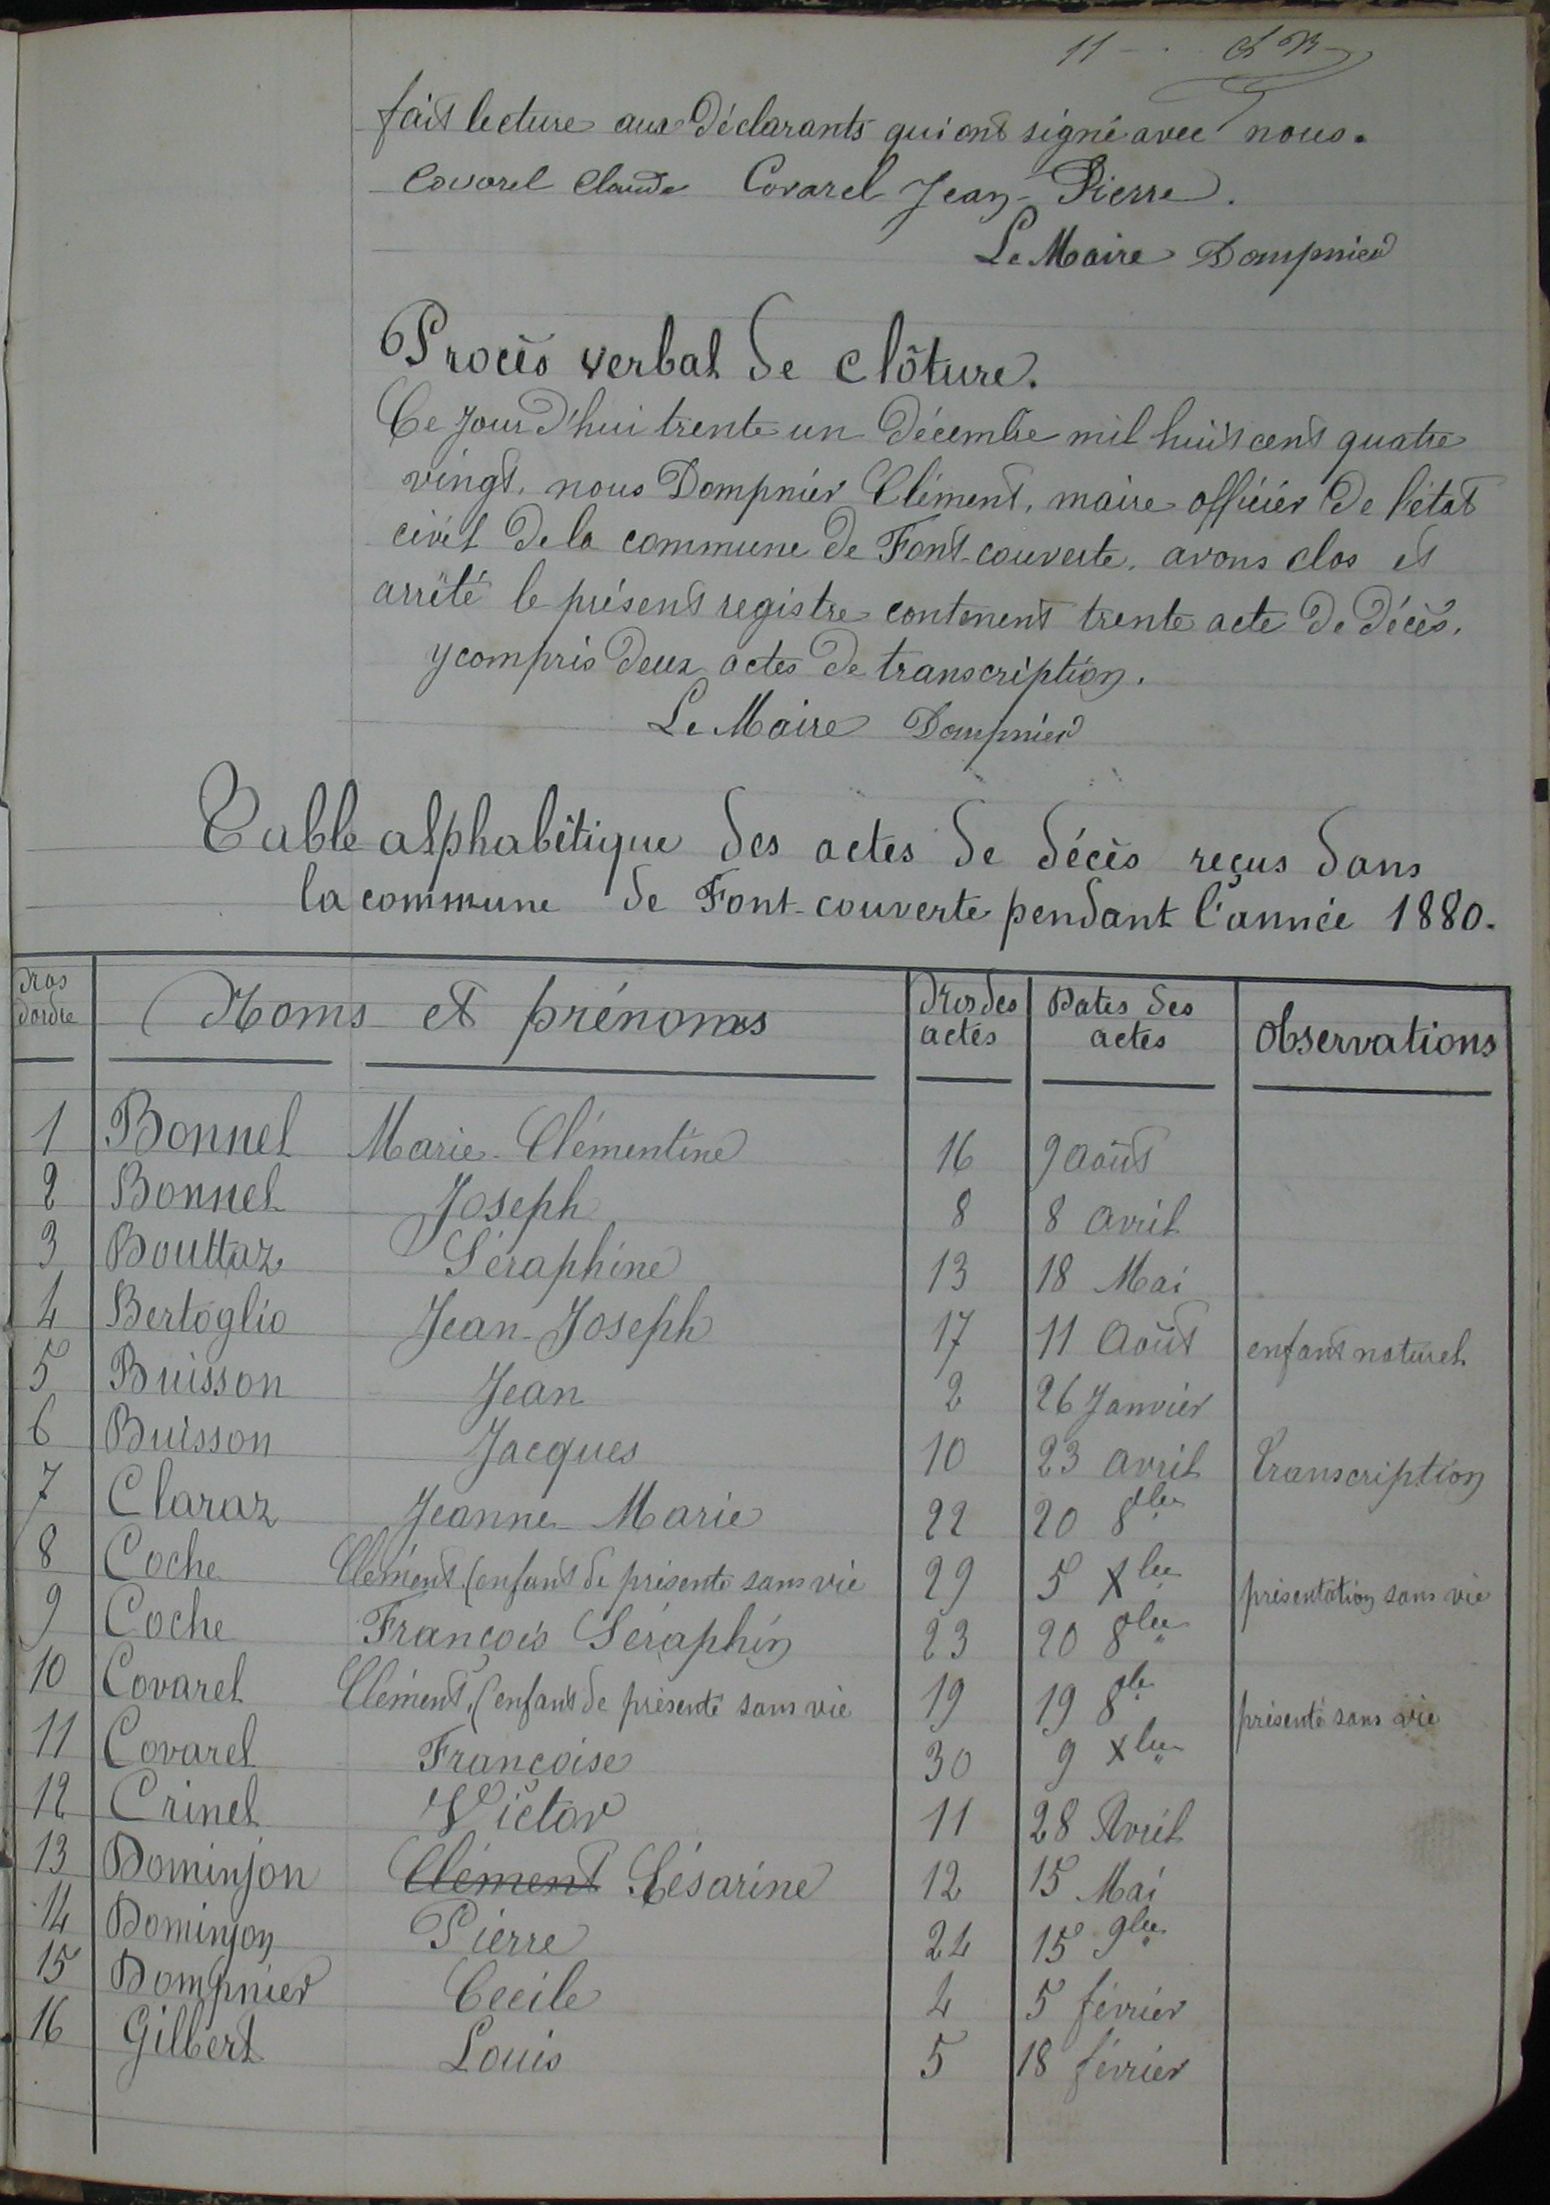 11
fait lecture aux déclarants qui ont signé avec nous.
Covarel Claude Covarel Jean-Pierre.
Le Maire Dompnier
Procès verbal de clôture.
Ce jour d'hui trente un décembre mil huit cent quatre
vingt, nous Dompnier Clément, maire officier de l'état
civil de la commune de Font-couverte, avons clos et
arrêté le présent registre contenent trente acte de décès,
y compris deux actes de transcription.
Le Maire Dompnier
Table alphabêtique des actes de décès reçus dans
la commune de Font-couverte pendant l'année 1880.
Nros d'ordre Noms et prénoms Nros des actes Dates des actes Observations
1 Bonnel Marie-Clémentine 16 9 Août
2 Bonnel Joseph 8 8 avril
3 Bouttaz Séraphine 13 18 Mai
4 Bertoglio Jean-Joseph 17 11 Août enfant naturel
5 Buisson Jean 2 26 Janvier
6 Buisson Jacques 10 23 avril Transcription
7 Claraz Jeanne Marie 22 20 8bre
8 Coche Clément (enfant de présenté sans vie 29 5 Xbre présentation sans vie
9 Coche François Séraphin 23 20 8bre
10 Covarel Clément, (enfant de présenté sans vie 19 19 8bre présenté sans vie
11 Covarel Françoise 30 9 Xbre
12 Crinel Victor 11 28 Avril
13 Dominjon Clément Césarine 12 15 Mai
14 Dominjon Pierre 24 15 9bre
15 Dompnier Cecile 4 5 février
16 Gilbert Louis 5 18 février